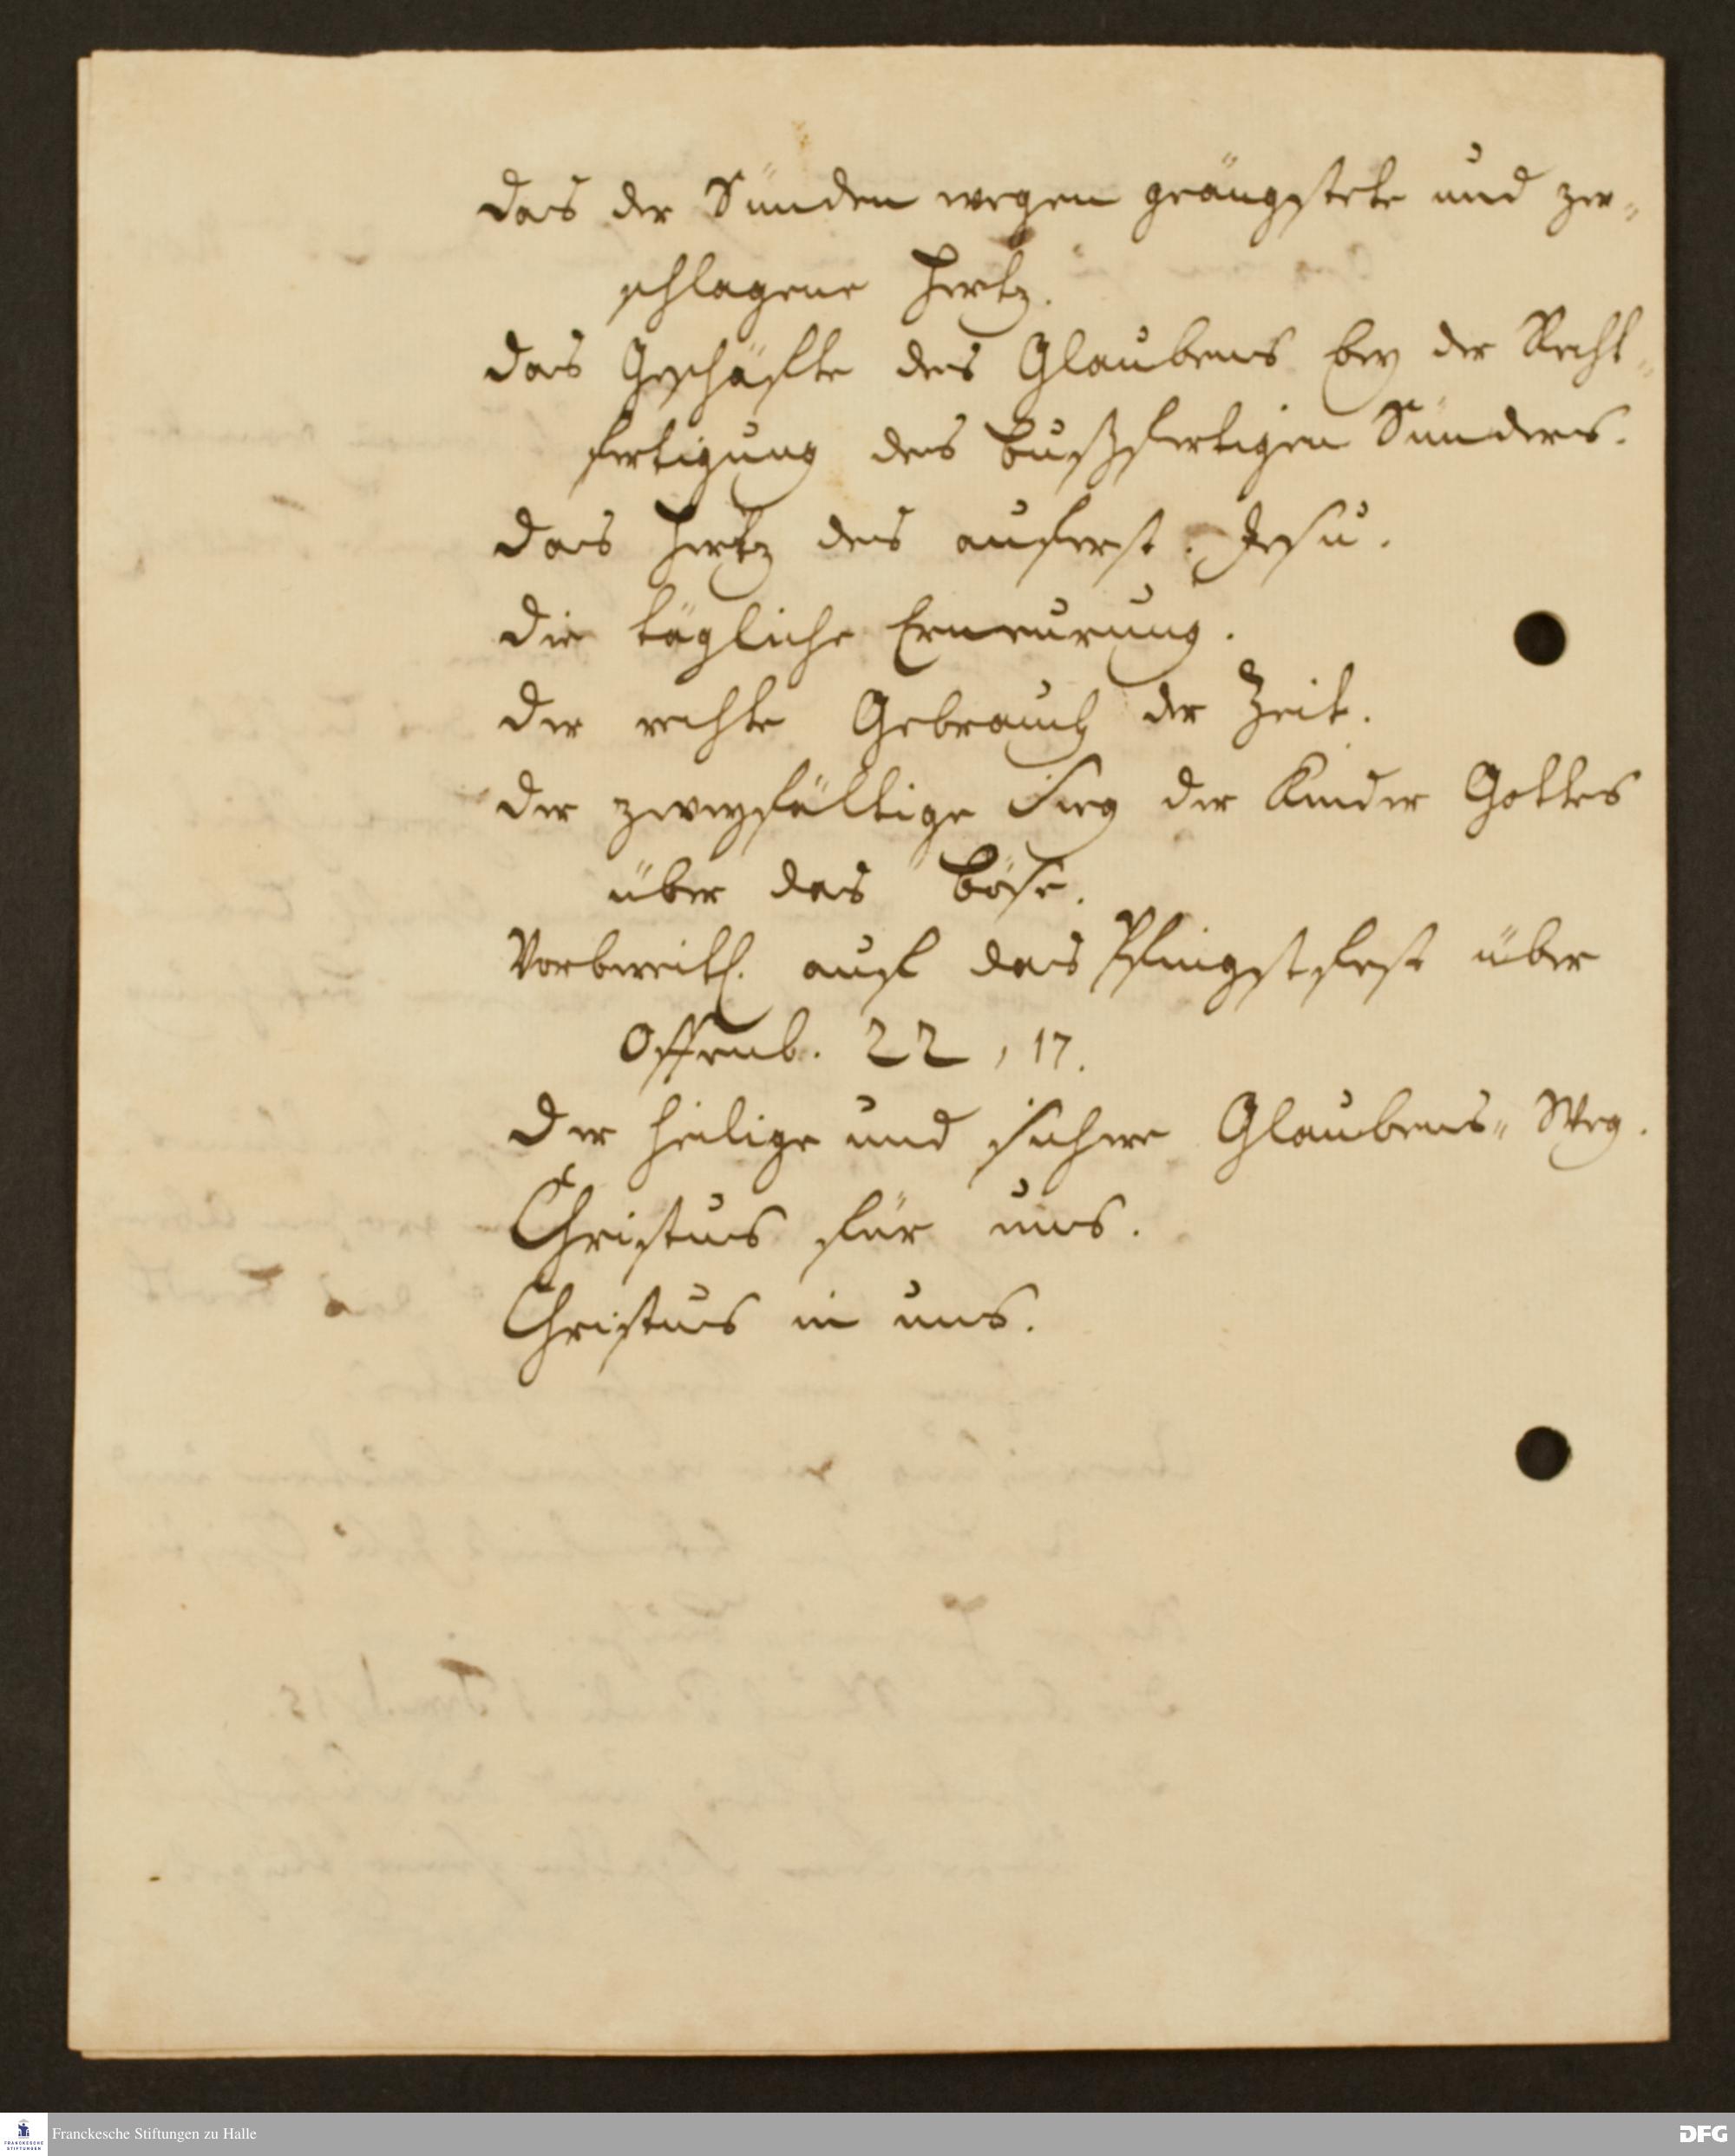 Das der Sünden wegen geängstete und zer-
schlagene Hertz.
Das Geschäfte des Glaubens bey der Recht-
fertigung des bußfertigen Sünders.
Das Hertz des auferst. Jesu.
Die tägliche Erneurung.
Der rechte Gebrauch der Zeit.
Der zweyfältige Sieg der Kinder Gottes
über das Böse.
Vorbereit. auf das Pfingstfest über
Offenb. 22, 17.
Der heilige und sichere Glaubens-Weg.
Christus für uns.
Christus in uns.
FRANCKESCHE
STIFTUNGEN
Franckesche Stiftungen zu Halle
DFG